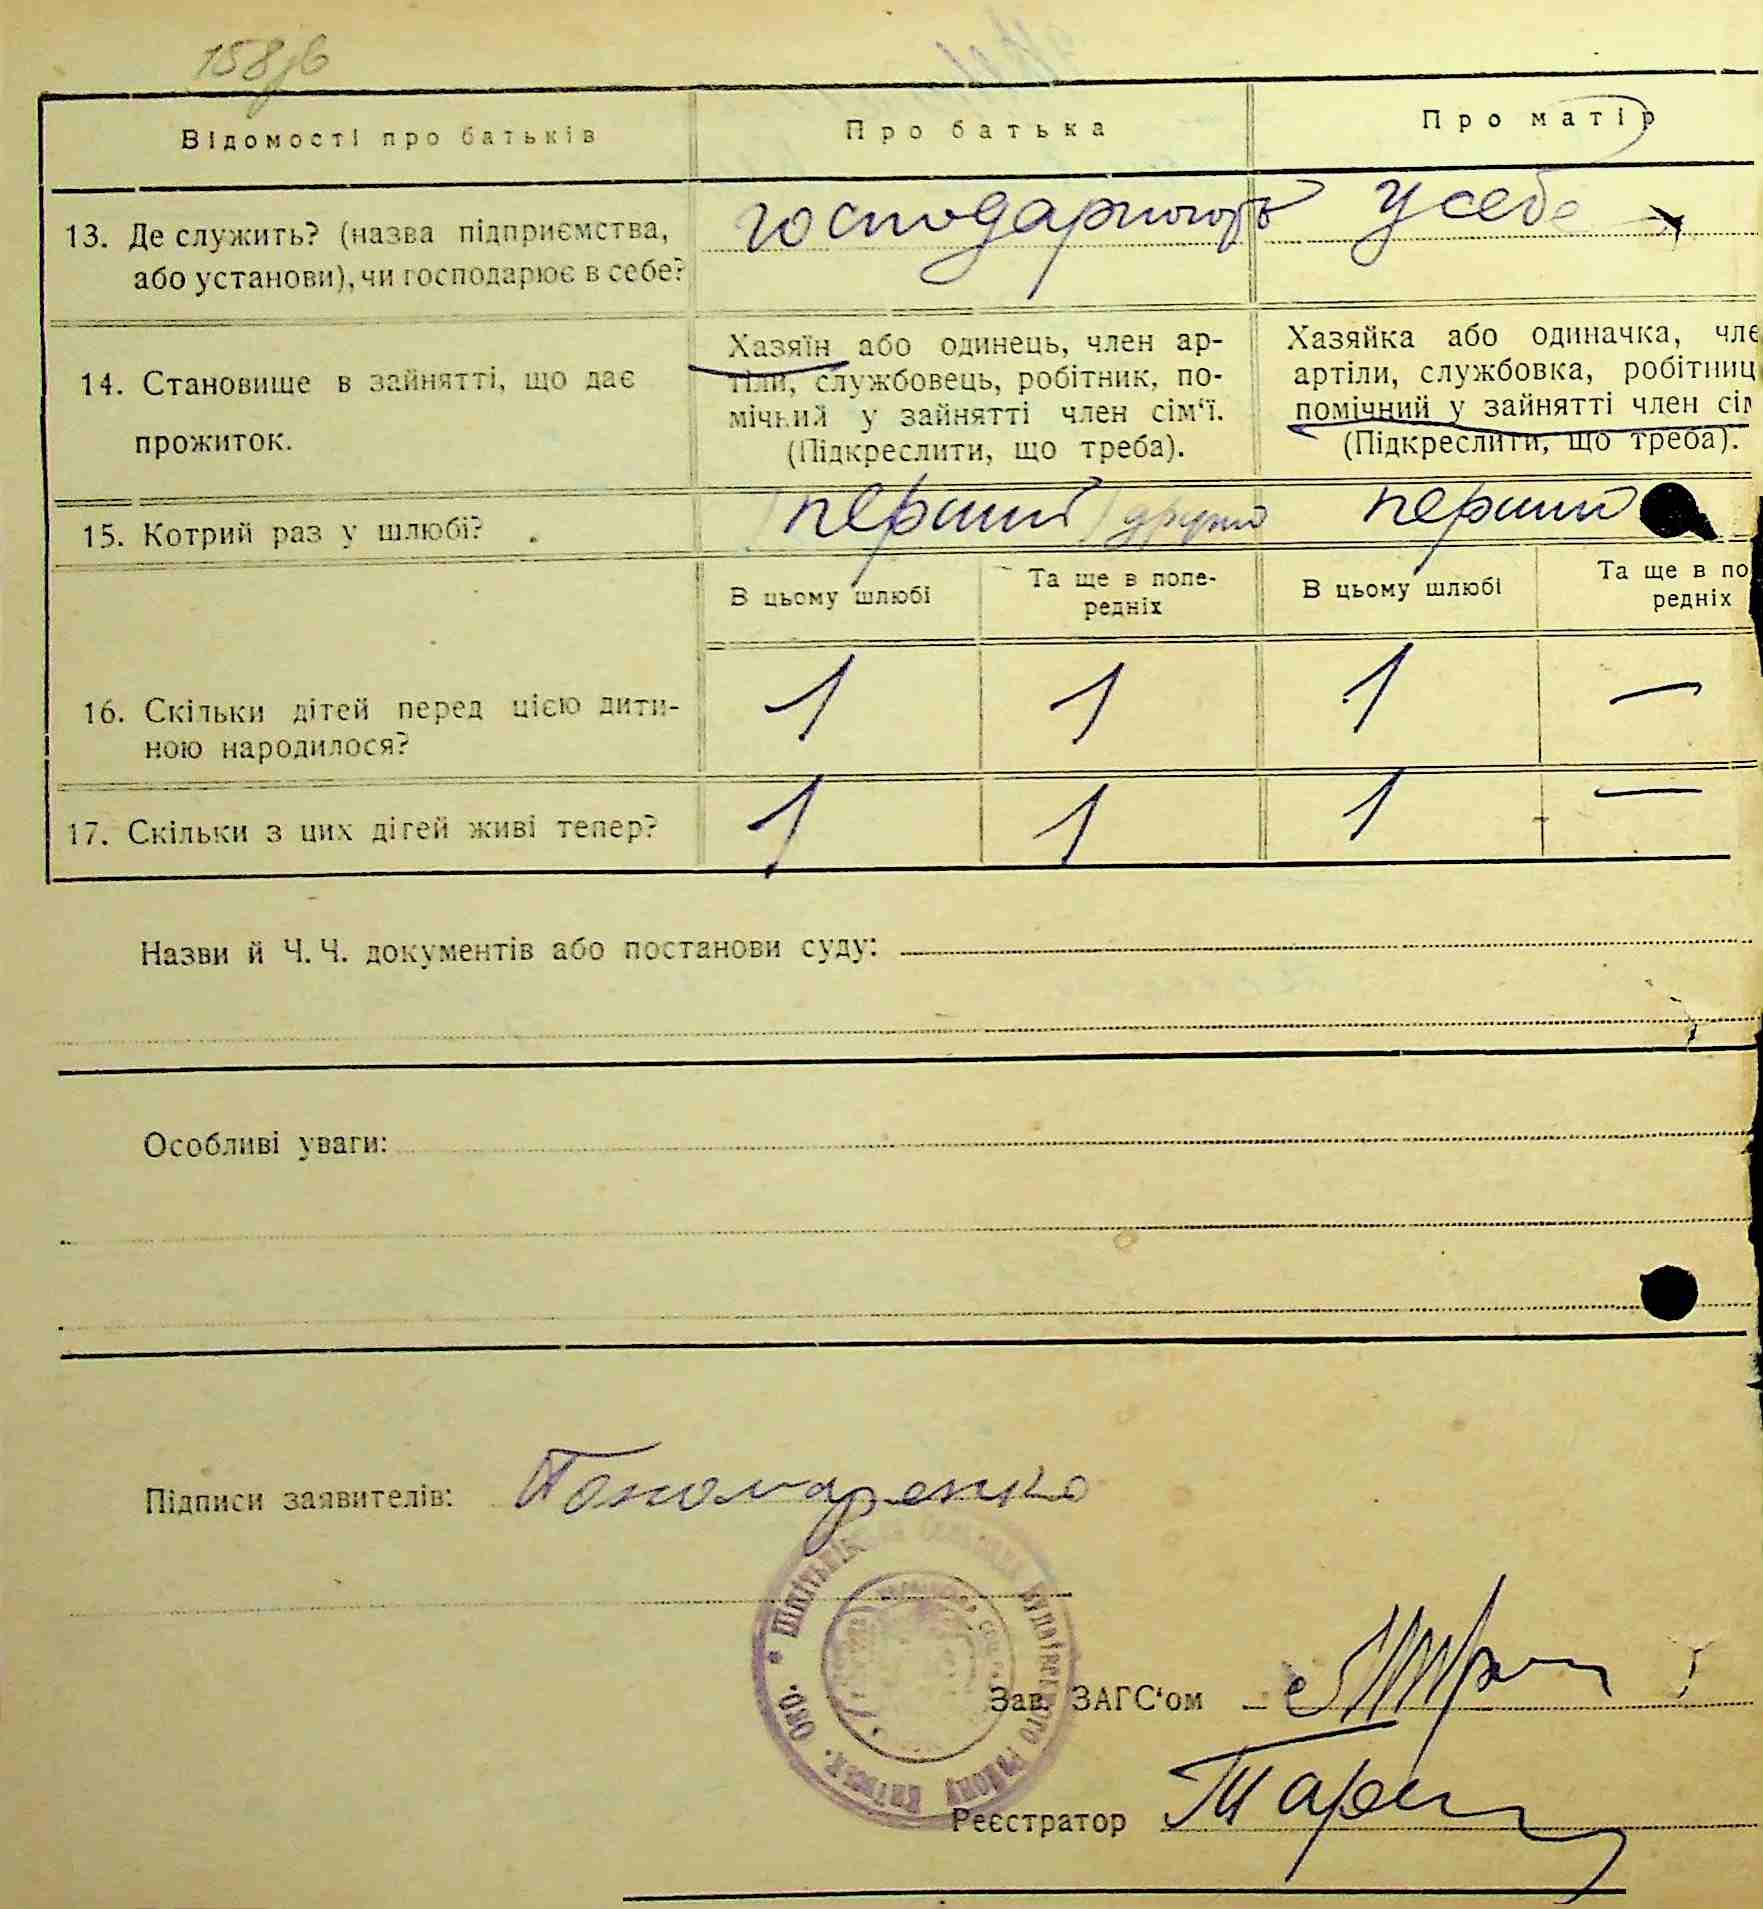 158зв
Відомості про батьків
Про батька
Про матір
13. Де служить? (назва підприємства,
або установи), чи господарює в себе?
господарюють у себе
14. Становище в зайнятті, що дає
прожиток.
Хазяїн або одинець, член ар-
тіли, службовець, робітник, по-
мічний у зайнятті член сім‘ї.
(Підкреслити, що треба).
Хазяйка або одиначка, чле
артіли, службовка, робітниц
помічний у зайнятті член сім
(Підкреслити, що треба).
15. Котрий раз у шлюбі?
(перший) другий
перший
В цьому шлюбі
Та ще в попе-
редніх
В цьому шлюбі
Та ще в по
редніх
16. Скільки дітей перед цією дити-
ною народилося?
1 1 1 —
17. Скільки з цих дітей живі тепер?
1 1 1 —
Назви й Ч. Ч. документів або постанови суду:
Особливі уваги:
Підписи заявителів: Пономаренко
Зав. ЗАГС‘ом
Реєстратор